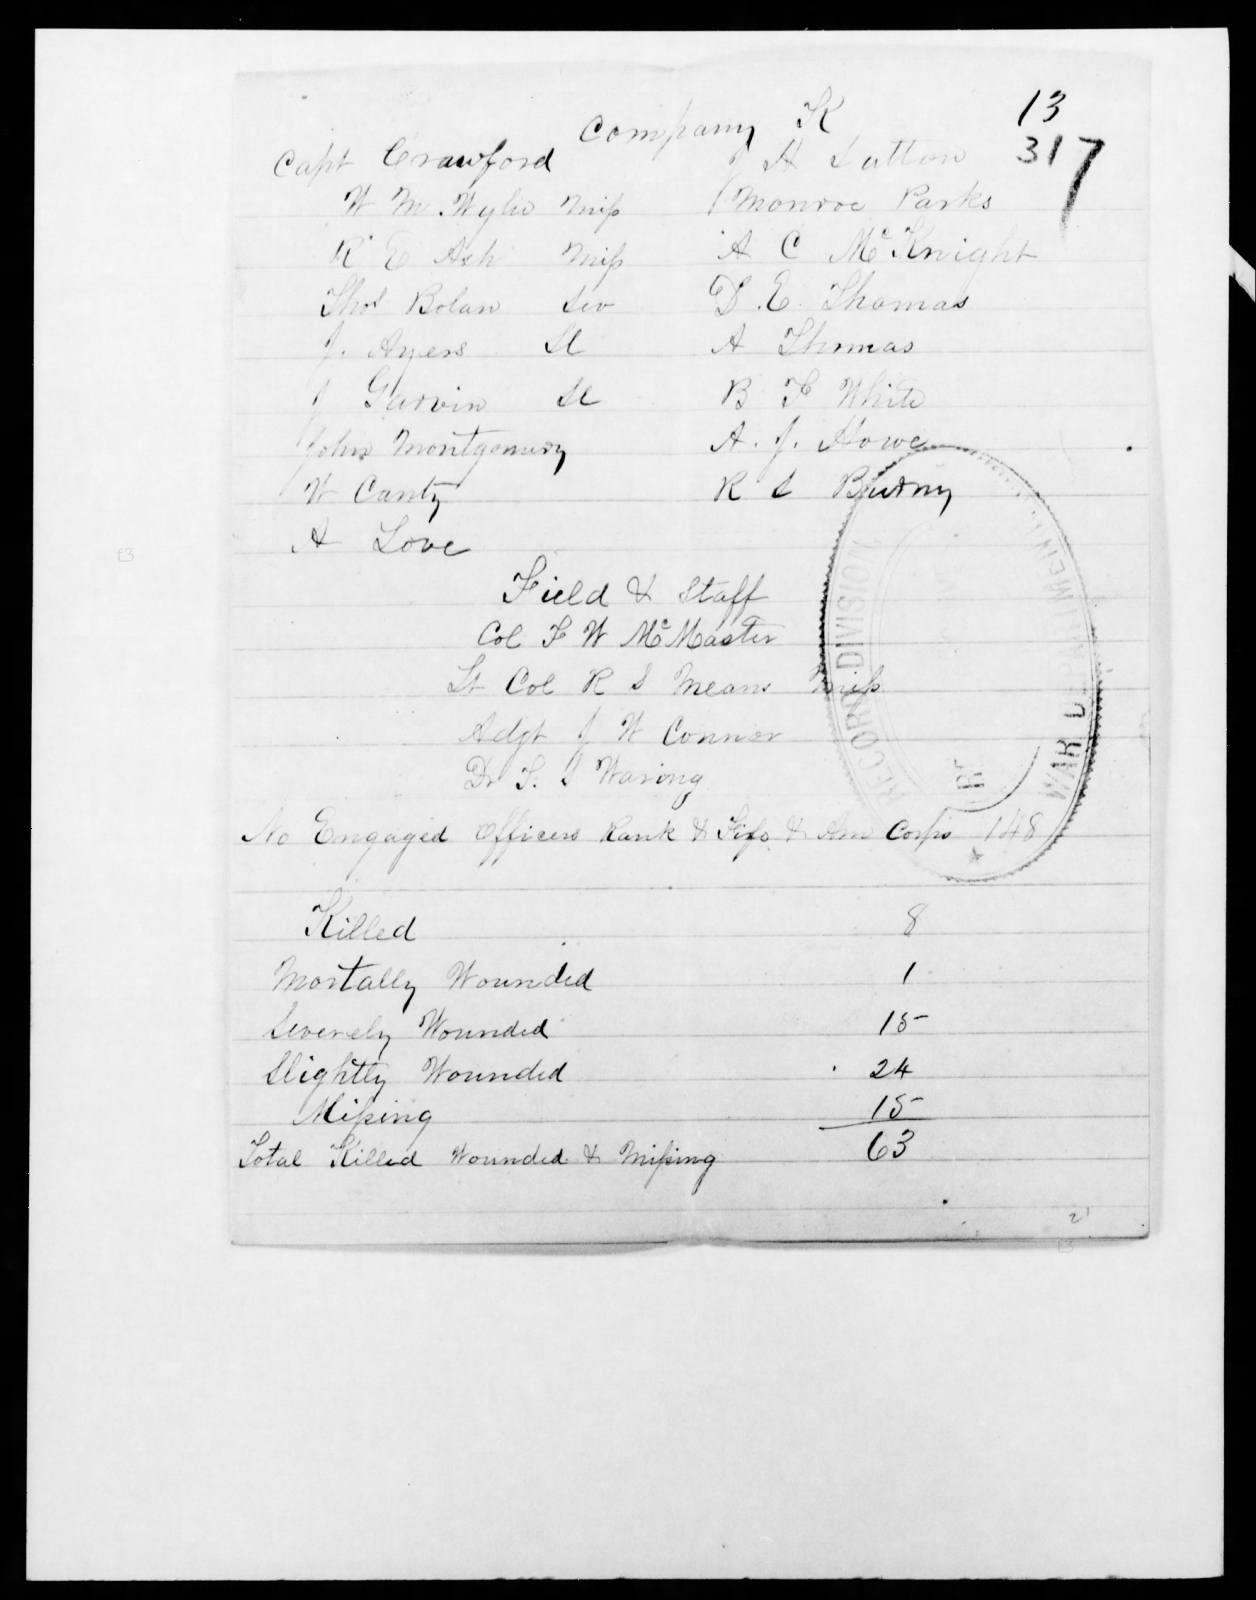 13
317
Company K
Capt Crawford
W M Wylie Miss
R E Ash Miss
Thos Bolan Sev
J. Ayers Sl
J Garvin Sl
John Montgomery
W Canty
A Love
J H Sutton
Monroe Parks
A C McKnight
D. E. Thomas
A Thomas
B F White
A. J. Howe
R S Burny
Field & Staff
Col F W McMaster
Lt Col R S Means Miss
Adgt J W Connor
Dr T. S Waring
No Engaged Officers Rank & File & Am Corps 148
Killed 8
Mortally Wounded 1
Severely Wounded 15
Slightly Wounded 24
Missing 15
Total Killed Wounded & Missing 63
RECORD DIVISION
WAR DEPARTMENT